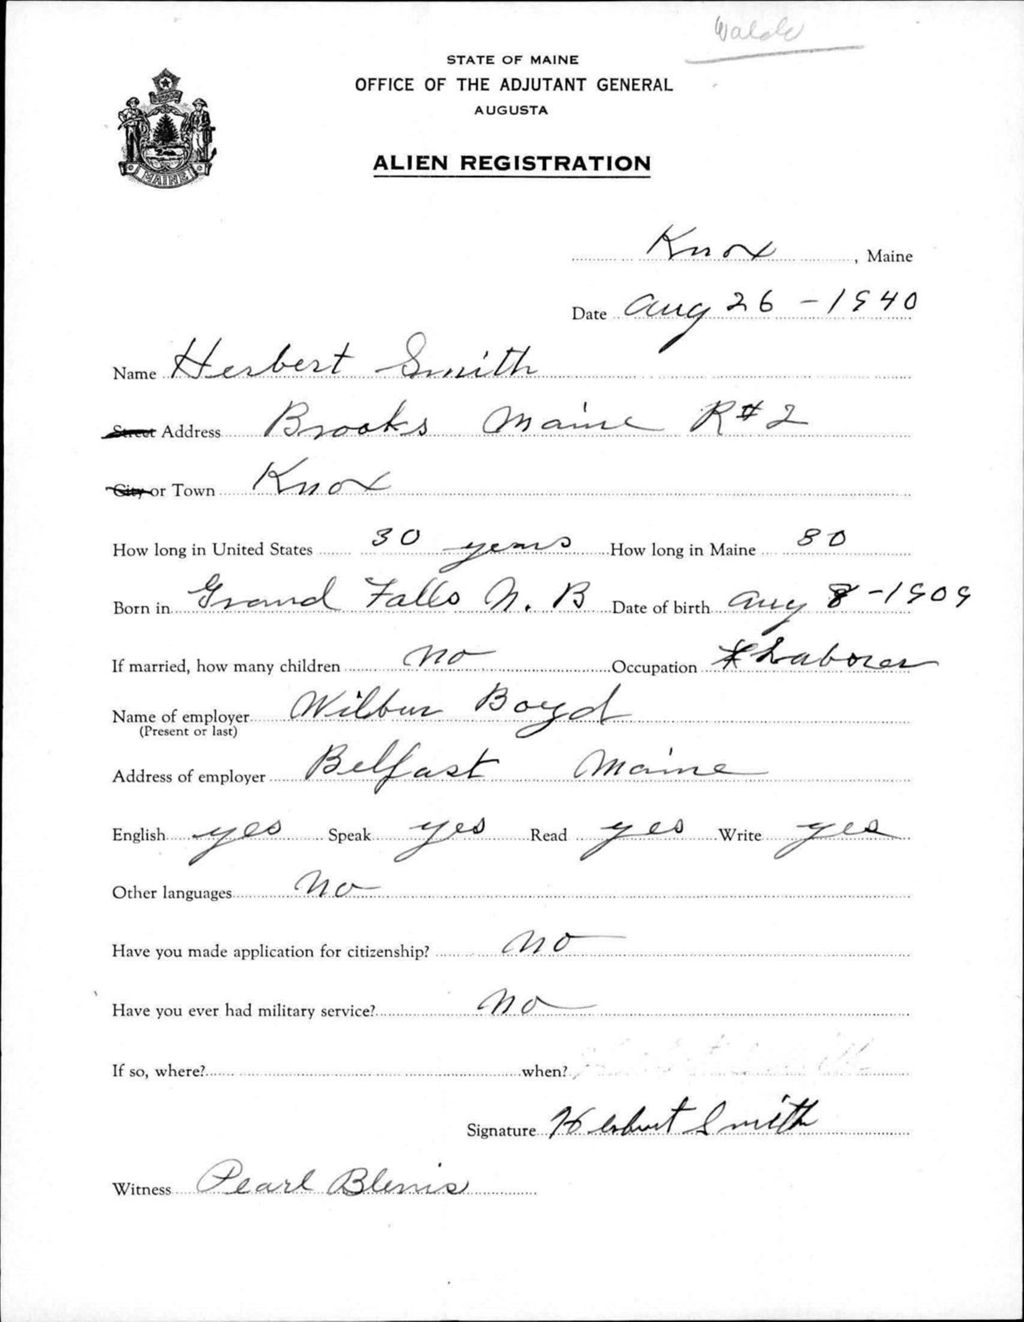 Waldo
STATE OF MAINE
OFFICE OF THE ADJUTANT GENERAL
AUGUSTA
MAINE
ALIEN REGISTRATION
Knox, Maine
Date Aug 26 - 1940
Name Herbert Smith
Street Address Brooks Maine R#2
City or Town Knox
How long in United States 30 years How long in Maine 30
Born in Grand Falls N. B Date of birth Aug 8 - 1909
If married, how many children no Occupation Laborer
Name of employer Wilbur Boyd
(Present or last)
Address of employer Belfast Maine
English yes Speak yes Read yes Write yes
Other languages No
Have you made application for citizenship? no
Have you ever had military service? no
If so, where? when?
Signature Herbert Smith
Witness Pearl Blenis